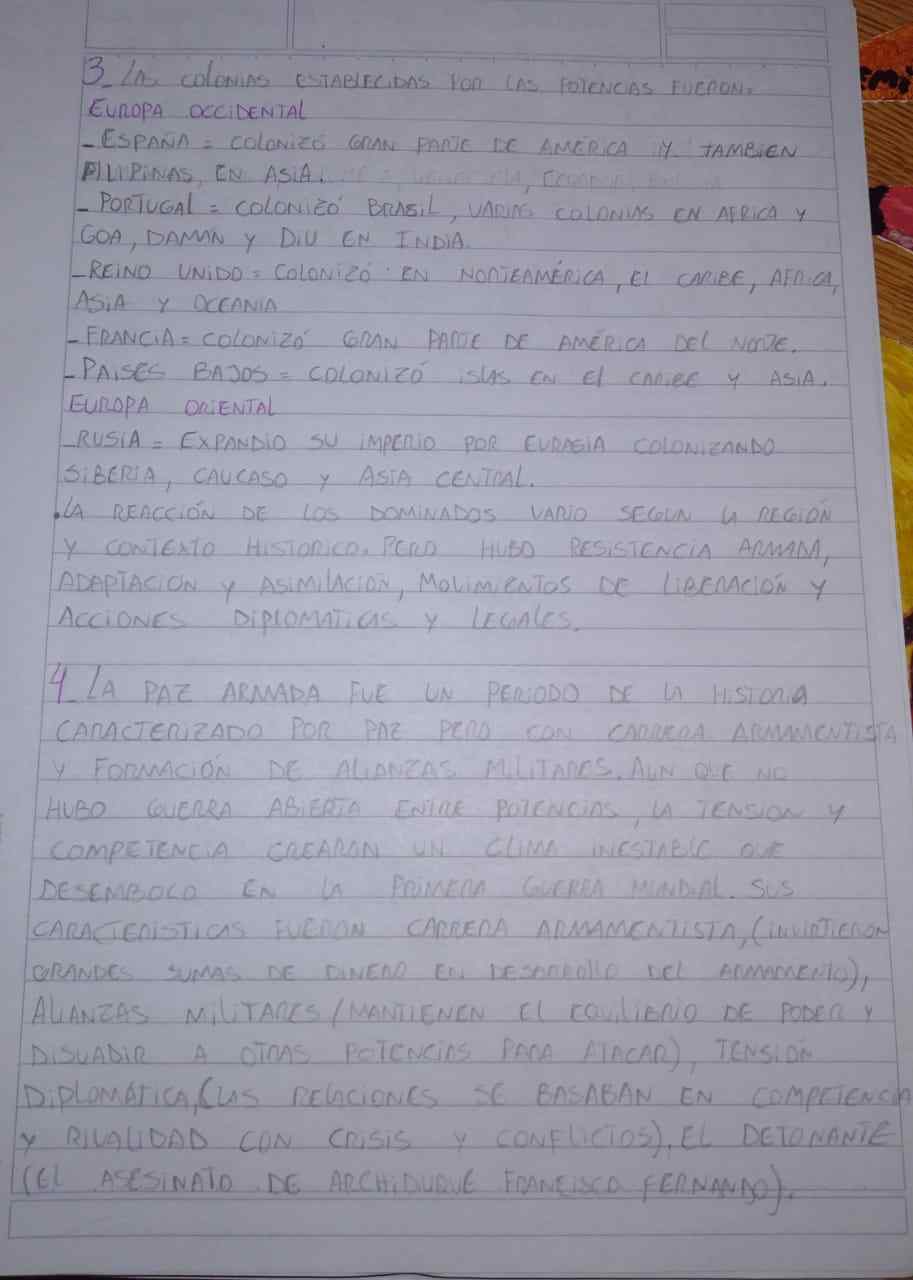 3_ LAS COLONIAS ESTABLECIDAS POR LAS POTENCIAS FUERON:
EUROPA OCCIDENTAL
- ESPAÑA = COLONIZÓ GRAN PARTE DE AMÉRICA Y TAMBIEN
FILIPINAS, EN ASIA.
- PORTUGAL = COLONIZÓ BRASIL, VARIAS COLONIAS EN AFRICA Y
GOA, DAMAN Y DIU EN INDIA.
- REINO UNIDO = COLONIZÓ EN NORTEAMÉRICA, EL CARIBE, AFRICA,
ASIA Y OCEANIA
- FRANCIA = COLONIZÓ GRAN PARTE DE AMÉRICA DEL NORTE.
- PAISES BAJOS = COLONIZÓ ISLAS EN El CARIBE Y ASIA.
EUROPA ORIENTAL
- RUSIA = EXPANDIO SU IMPERIO POR EURASIA COLONIZANDO
SIBERIA, CAUCASO Y ASIA CENTRAL.
. LA REACCIÓN DE LOS DOMINADOS VARIO SEGUN LA REGIÓN
Y CONTEXTO HISTORICO. PERO HUBO RESISTENCIA ARMADA,
ADAPTACION Y ASIMILACIÓN, MOVIMIENTOS DE LIBERACIÓN Y
ACCIONES DIPLOMATICAS Y LEGALES.
4_ LA PAZ ARMADA FUE UN PERIODO DE LA HISTORIA
CARACTERIZADO POR PAZ PERO CON CARRERA ARMAMENTISTA
Y FORMACIÓN DE ALIANZAS MILITARES. AUN QUE NO
HUBO GUERRA ABIERTA ENTRE POTENCIAS, LA TENSION Y
COMPETENCIA CREARON UN CLIMA INESTABLE QUE
DESEMBOLCO EN LA PRIMERA GUERRA MUNDIAL. SUS
CARACTERISTICAS FUERON CARRERA ARMAMENTISTA, (INVIRTIERON
GRANDES SUMAS DE DINERO EN DESARROLLO DEL ARMAMENTO),
ALIANZAS MILITARES (MANTIENEN El EQUILIBRIO DE PODER Y
DISUADIR A OTRAS POTENCIAS PARA ATACAR), TENSIÓN
DIPLOMÁTICA, (LAS RELACIONES SE BASABAN EN COMPETENCIA
Y RIVALIDAD CON CRISIS Y CONFLICTOS), EL DETONANTE
(EL ASESINATO DE ARCHIDUQUE FRANCISCO FERNANDO).